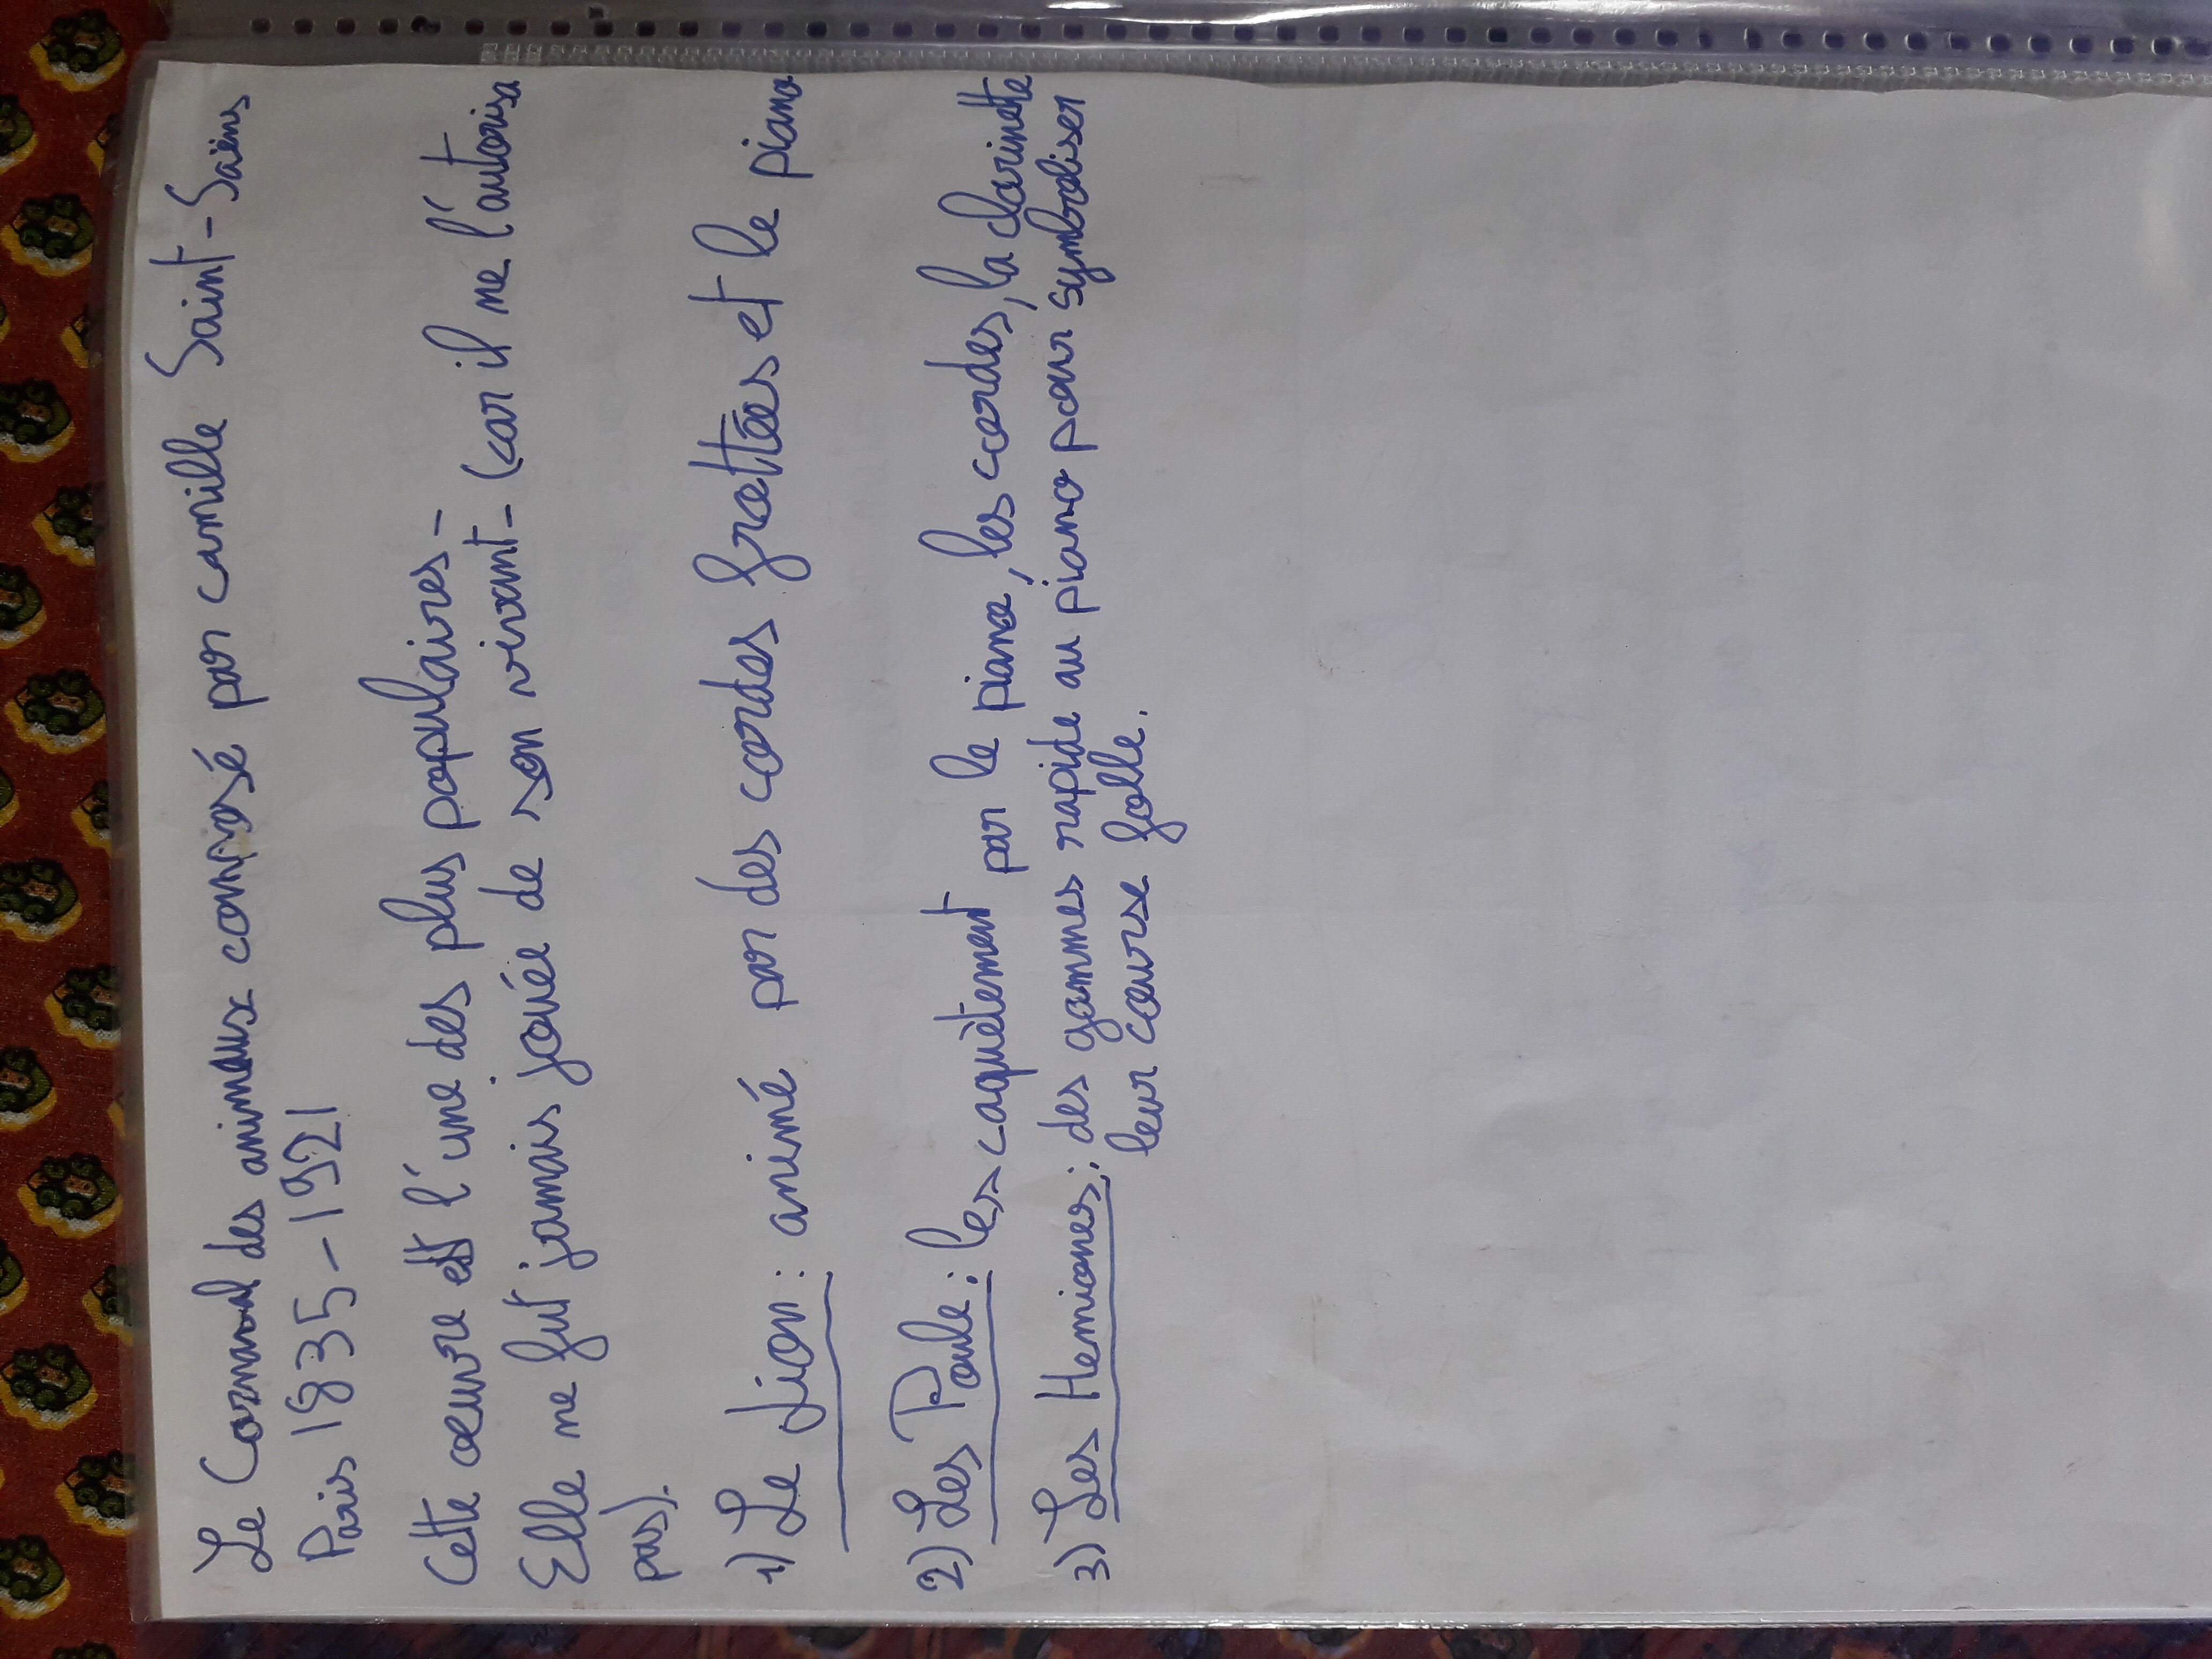 Le Carnaval des animaux composé par camille Saint-Saëns
Paris 1835-1921
Cette oeuvre est l'une des plus populaires-
Elle ne fut jamais jouée de son vivant- (car il ne l'autorisa
pas).
1) Le Lion : animé par des cordes frottées et le piano
2) Les Poule : les caquètement par le piano, les cordes, la clarinette
3) Les Hemiones : des gammes rapide au piano pour symboliser
leur course folle.